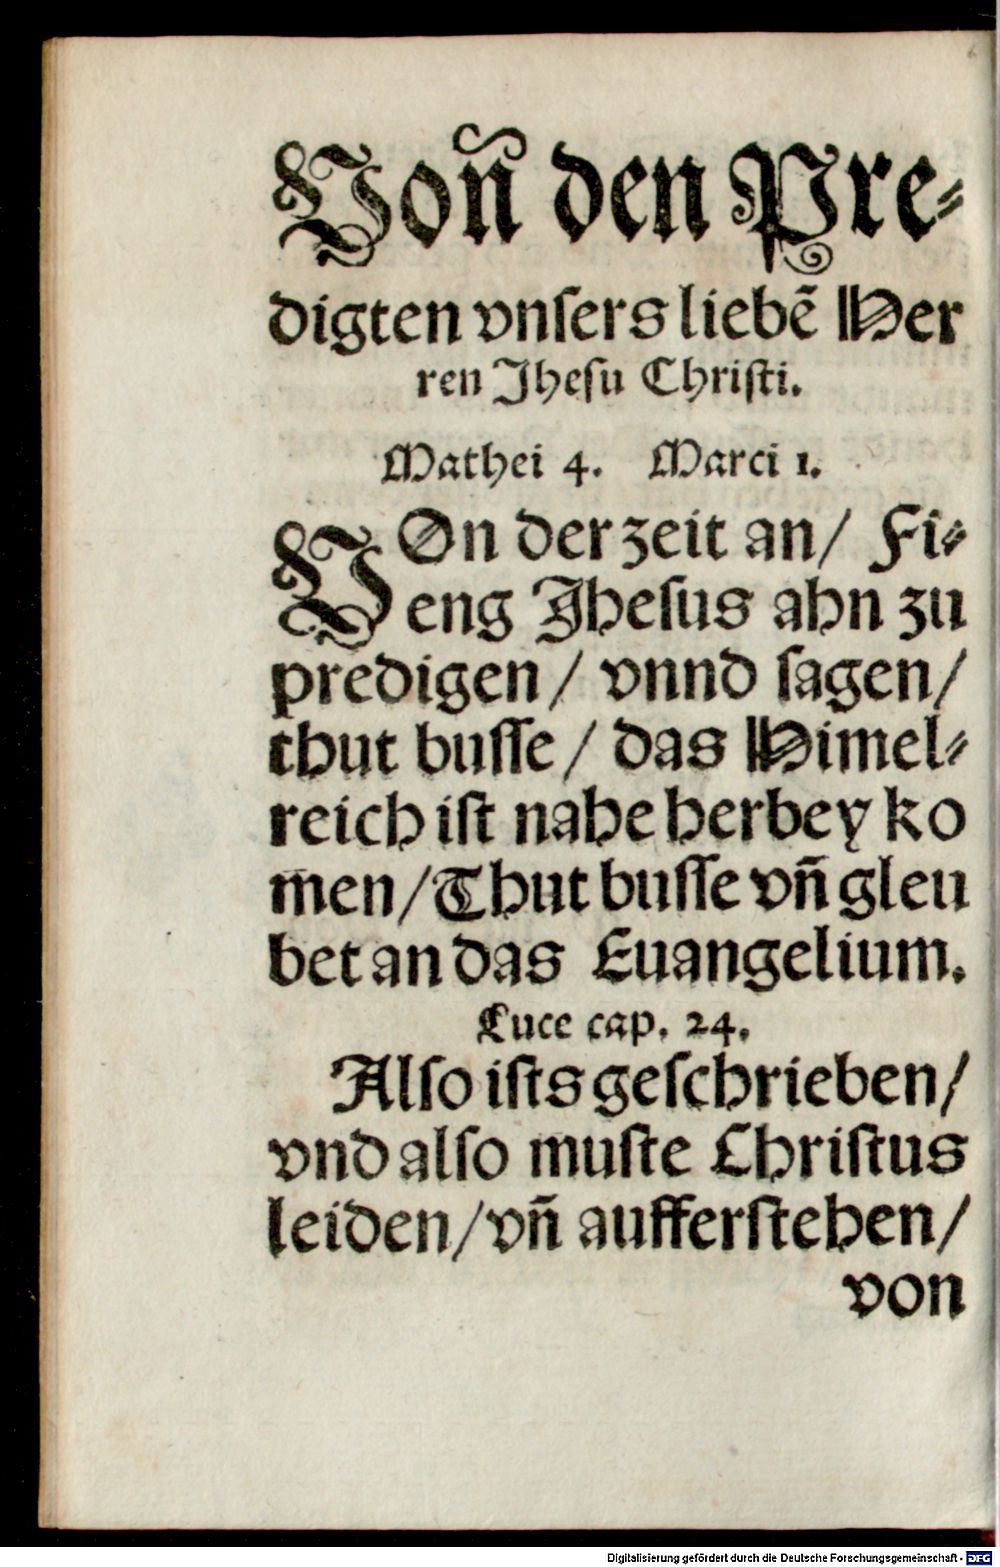 Von den Pre-
digten vnſers liebē Her
ren Jheſu Chriſti.
Mathei 4. Marci 1.
VOn der zeit an/ Fi-
eng Jheſus ahn zu
predigen/ vnnd ſagen/
thut buſſe/ das Himel-
reich iſt nahe herbey ko
men/Thut buſſe vñ gleu
bet an das Euangelium.
Luce cap. 24.
Alſo iſts geſchrieben/
vnd alſo muſte Chriſtus
leiden/vñ aufferſtehen/
von
Digitalisierung gefördert durch die Deutsche Forschungsgemeinschaft - DFG